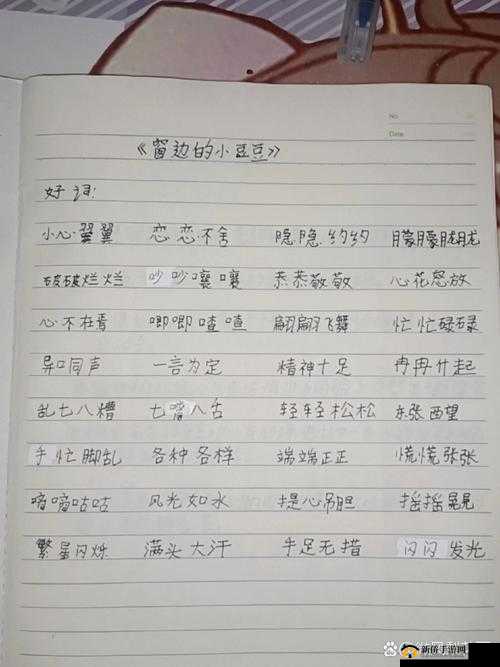 No
Date
《窗边的小豆豆》
好词:
小心翼翼 恋恋不舍 隐隐约约 朦朦胧胧
破破烂烂 吵吵嚷嚷 恭恭敬敬 心花怒放
心不在焉 唧唧喳喳 翩翩飞舞 忙忙碌碌
异口同声 一言为定 精神十足 冉冉升起
乱七八糟 七嘴八舌 轻轻松松 东张西望
手忙脚乱 各种各样 端端正正 慌慌张张
嘀嘀咕咕 风光如水 提心吊胆 摇摇晃晃
繁星闪烁 满头大汗 手足无措 闪闪发光
新侨手游网